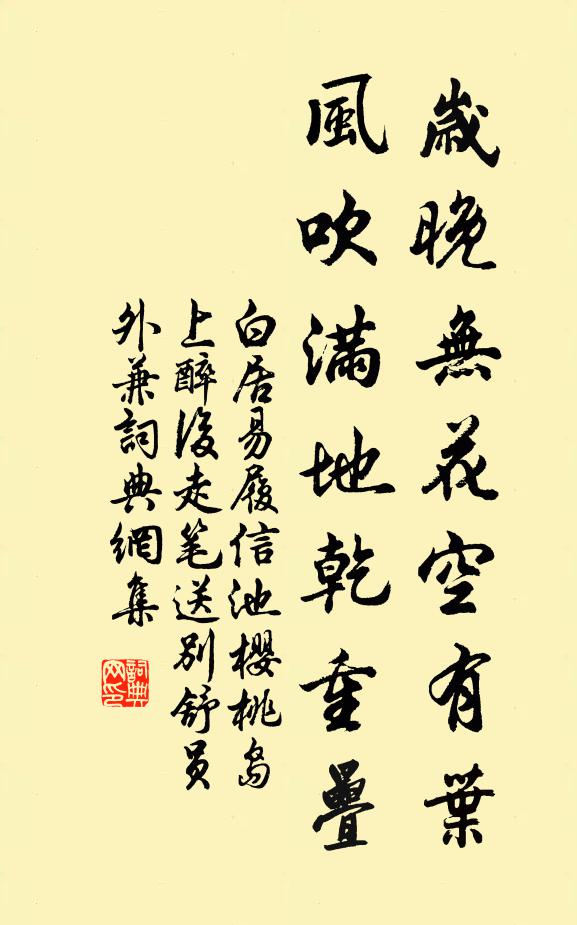 歲晚無花空有葉
風吹滿地乾重疊
白居易履信池櫻桃島
上醉後走笔送别舒員
外兼詞典網集
詞典
网印